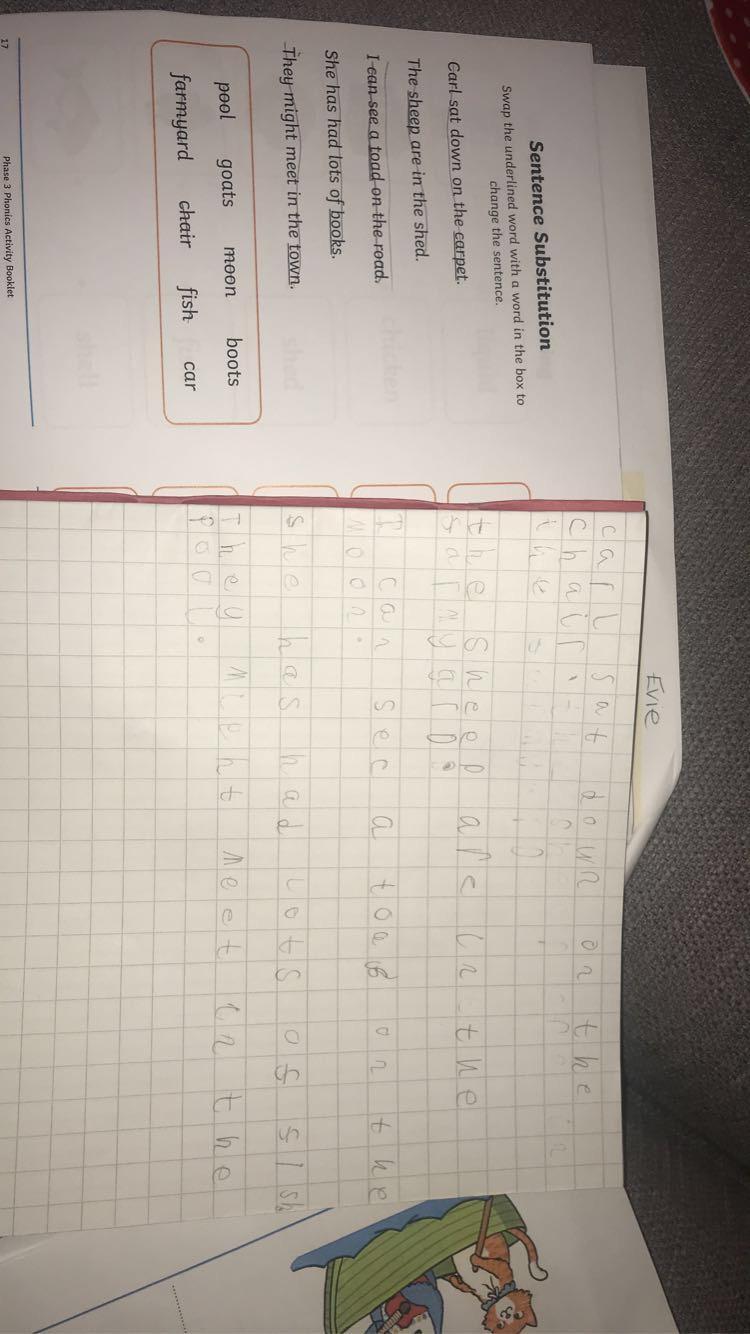 Sentence Substitution
Swap the underlined word with a word in the box to
change the sentence.
Carl sat down on the carpet.
The sheep are in the shed.
I can see a toad on the road.
She has had lots of books.
They might meet in the town.
pool goats moon boots
farmyard chair fish car
17 Phase 3 Phonics Activity Booklet
Evie
carl sat down on the
chair.
the Sheep are in the
farmyard.
I can see a toad on the
moon.
She has had lots of fish
They might meet in the
pool.
chicken
shed
shell